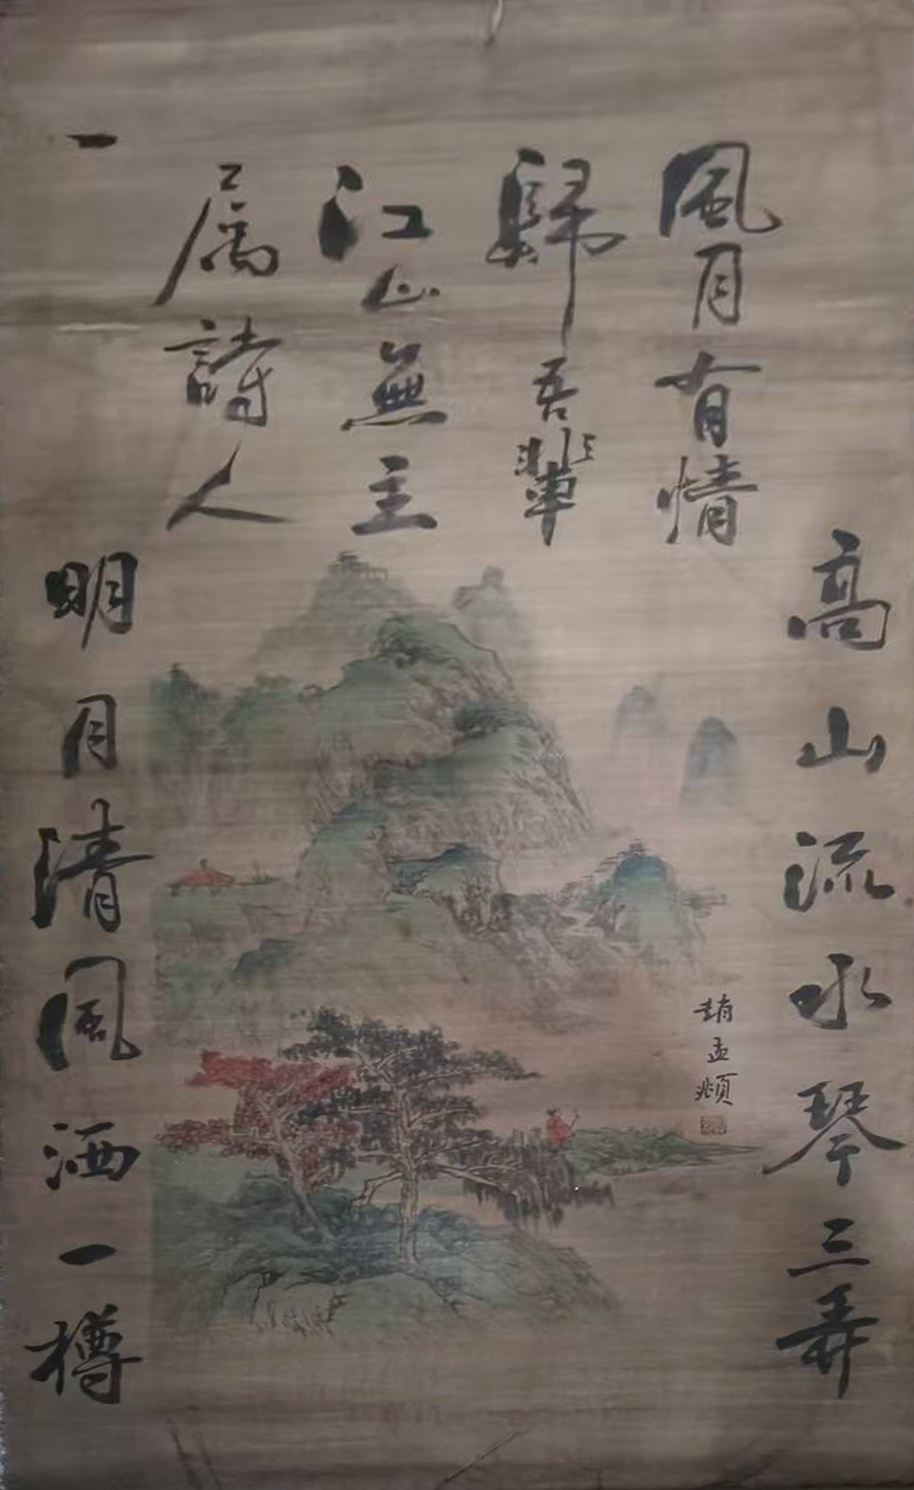 風月有情
歸吾輩
江山無主
属詩人
一
高山流水琴三弄
明月清風洒一樽
趙孟頫